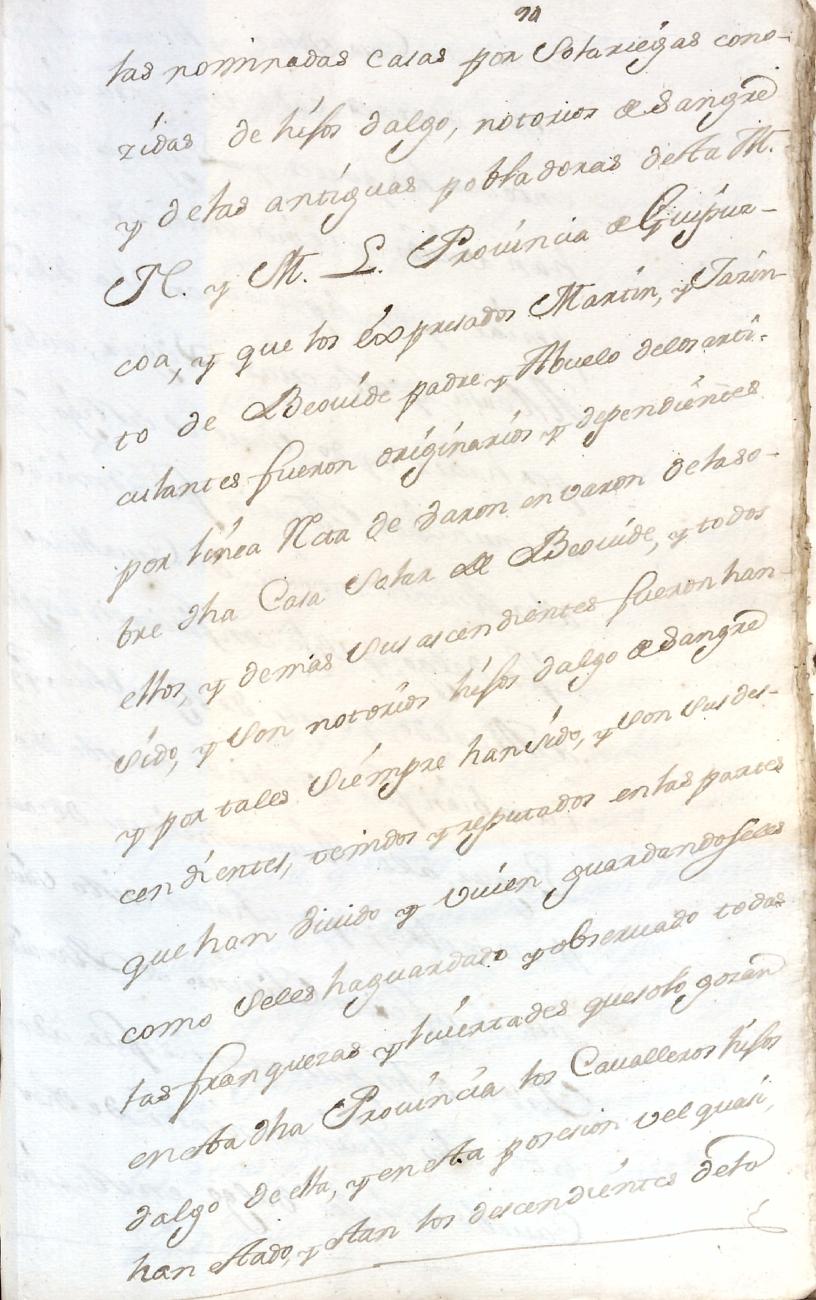 las nominadas casas por Solariegas cono-
zidas de hijos dalgo, notorios de Sangre
y delas antiguas pobladoras desta M.
N. y M. L. Provincia de Guipuz-
coa, y que los expresados Martin, y Jazin-
to de Beovide padre y Abuelo delos arti-
culantes fueron originarios y dependientes
por linea Rcta de varon en varon de la so-
bre dha Casa Solar de Beovide, y todos
ellos, y demas sus ascendientes fueron han
sido, y son notorios hijos dalgo de Sangre
y por tales siempre han sido, y son sus des-
cendientes, tenidos y reputados en las partes
que han vivido y viven guardandoseles
como seles ha guardado y observado todas
las franquezas y livertades que solo gozan
en esta dha Provincia los Cavalleros hijos
dalgo de ella, y en esta posesion vel quasi,
han estado, y estan los descendientes de la